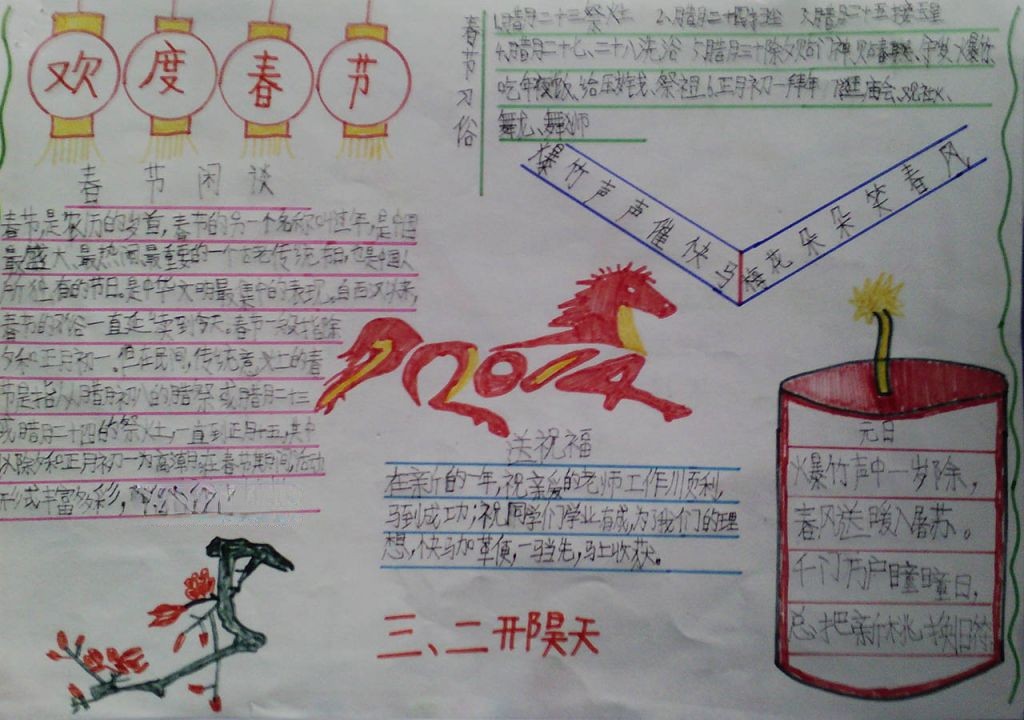 欢度春节
春节习俗
1.腊月二十三祭灶 2.腊月二十四扫尘 3.腊月二十五接玉皇
4.腊月二十七、二十八洗浴 5.腊月三十除夕贴门神、贴春联、守岁、爆竹、
吃年夜饭、给压岁钱、祭祖 6.正月初一拜年 7.逛庙会、
舞龙、舞狮
爆竹声声催快马
梅花朵朵笑春风
春节闲谈
春节,是农历的岁首,春节的另一个名称叫过年,是中国
最盛大、最热闹、最重要的一个古老传统节日,也是中国人
所独有的节日。是中华文明最集中的表现。自西汉以来,
春节的习俗一直延续到今天。春节一般指除
夕和正月初一。但在民间,传统意义上的春
节是指从腊月初八的腊祭或腊月二十三
或腊月二十四的祭灶,一直到正月十五,其中
以除夕和正月初一为高潮。在春节期间,活动
形式丰富多彩,
2014
送祝福
在新的一年,祝亲爱的老师工作顺利,
马到成功;祝同学们学业有成,为了我们的理
想,快马加革便,一马当先,马上收获。
三、二 开阳昊天
元日
爆竹声中一岁除,
春风送暖入屠苏。
千门万户曈曈日,
总把新桃换旧符